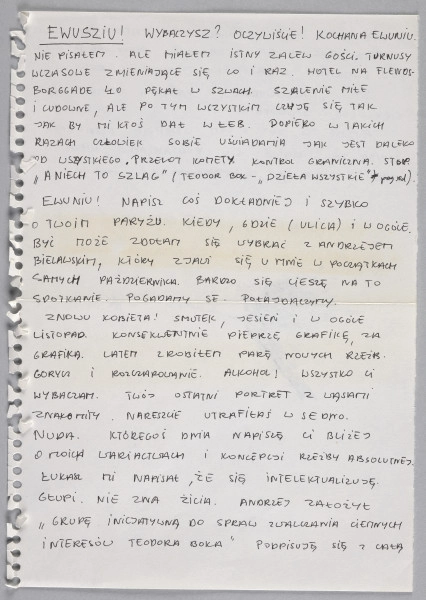 EWUSZIU! WYBACZYSZ? OCZYWIŚCIE! KOCHANA EWUNIU.
NIE PISAŁEM. ALE MIAŁEM ISTNY ZALEW GOŚCI. TURNUSY
WCZASOWE ZMIENIAJĄCE SIĘ CO I RAZ. HOTEL NA FLENDS-
BORGGADE 40 PĘKAŁ W SZWACH. SZALENIE MIŁE
I CUDOWNE, ALE PO TYM WSZYSTKIM CZUJĘ SIĘ TAK
JAK BY MI KTOŚ DAŁ W ŁEB. DOPIERO W TAKICH
RAZACH CZŁOWIEK SOBIE UŚWIADAMIA JAK JEST DALEKO
OD WSZYSTKIEGO. PRZELOT KOMETY. KONTROL GRANICZNA. STOP.
"A NIECH TO SZLAG" (TEODOR BOK - "DZIEŁA WSZYSTKIE"
EWUNIU! NAPISZ COŚ DOKŁADNIEJ I SZYBKO
O TWOIM PARYŻU. KIEDY, GDZIE (ULICA) I W OGÓLE.
BYĆ MOŻE ZDOŁAM SIĘ WYBRAĆ Z ANDRZEJEM
BIELAWSKIM, KTÓRY ZJAWI SIĘ U MNIE W POCZĄTKACH
SAMYCH PAŹDZIERNIKA. BARDZO SIĘ CIESZĘ NA TO
SPOTKANIE. POGADAMY SE. POŁAJDACZYMY.
ZNOWU KOBIETA! SMUTEK, JESIEŃ I W OGÓLE
LISTOPAD. KONSEKWENTNIE PIEPRZĘ GRAFIKĘ, ZA
GRAFIKĄ. LATEM ZROBIŁEM PARĘ NOWYCH RZEŹB.
GORYCZ I ROZCZAROWANIE. ALKOHOL! WSZYSTKO CI
WYBACZAM. TWÓJ OSTATNI PORTRET Z WĄSAMI
ZNAKOMITY. NARESZCIE UTRAFIŁAŚ W SEDNO.
NUDA. KTÓREGOŚ DNIA NAPISZĘ CI BLIŻEJ
O MOICH WARIACTWACH I KONCEPCJI RZEŹBY ABSOLUTNEJ.
ŁUKASZ MI NAPISAŁ, ŻE SIĘ INTELEKTUALIZUJĘ.
GŁUPI. NIE ZNA ŻYCIA. ANDRZEJ ZAŁOŻYŁ
"GRUPĘ INICJATYWNĄ DO SPRAW ZWALCZANIA CIEMNYCH
INTERESÓW TEODORA BOKA" PODPISUJĘ SIĘ Z CAŁĄ